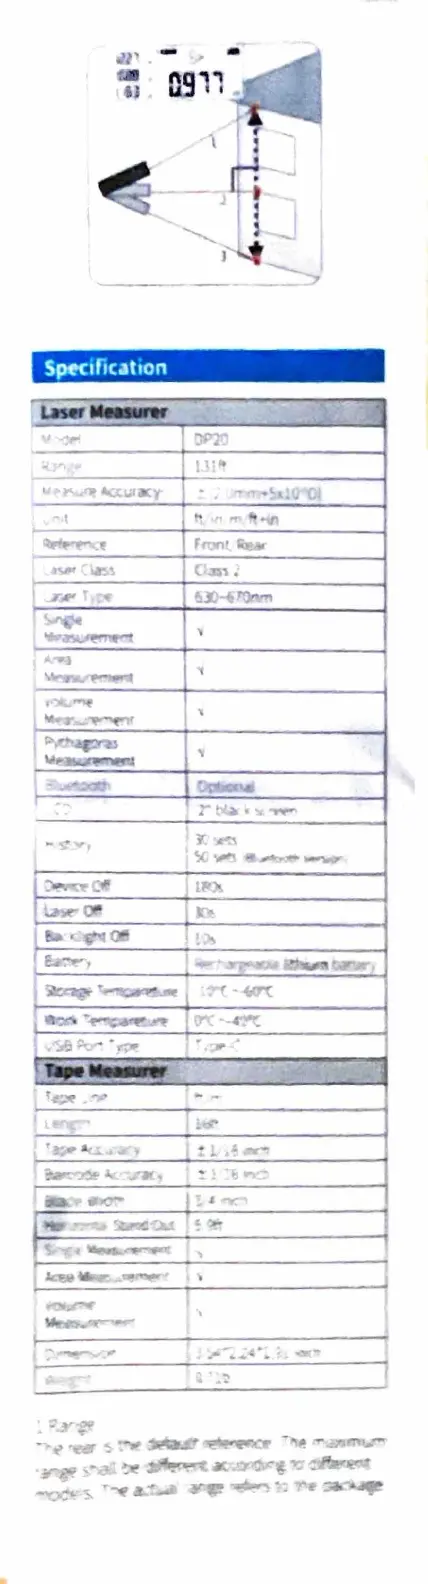 0977
1
2
3
Specification
Laser Measurer
Model DP20
Range 131ft
Measure Accuracy
Unit ft/in m/ft+in
Reference Front/Rear
Laser Class Class 2
Laser Type 630~670nm
Single
Measurement √
Area
Measurement √
Volume
Measurement √
Pythagoras
Measurement √
Bluetooth Optional
LCD 2" black screen
History 30 sets
50 sets (Bluetooth version)
Device Off 180s
Laser Off 30s
Backlight Off 10s
Battery Rechargeable lithium battery
Storage Temparature ~60℃
Work Temparature 0℃~40℃
USB Port Type Type-C
Tape Measurer
Tape Line
Length 16ft
Tape Accuracy ±1/16 inch
Barcode Accuracy ±1/16 inch
Blade Width 3/4 inch
Horizontal Stand Out
Single Measurement √
Area Measurement √
Volume
Measurement √
Dimension
Weight
1 Range
The rear is the default reference. The maximum
range shall be different according to different
models. The actual range refers to the package